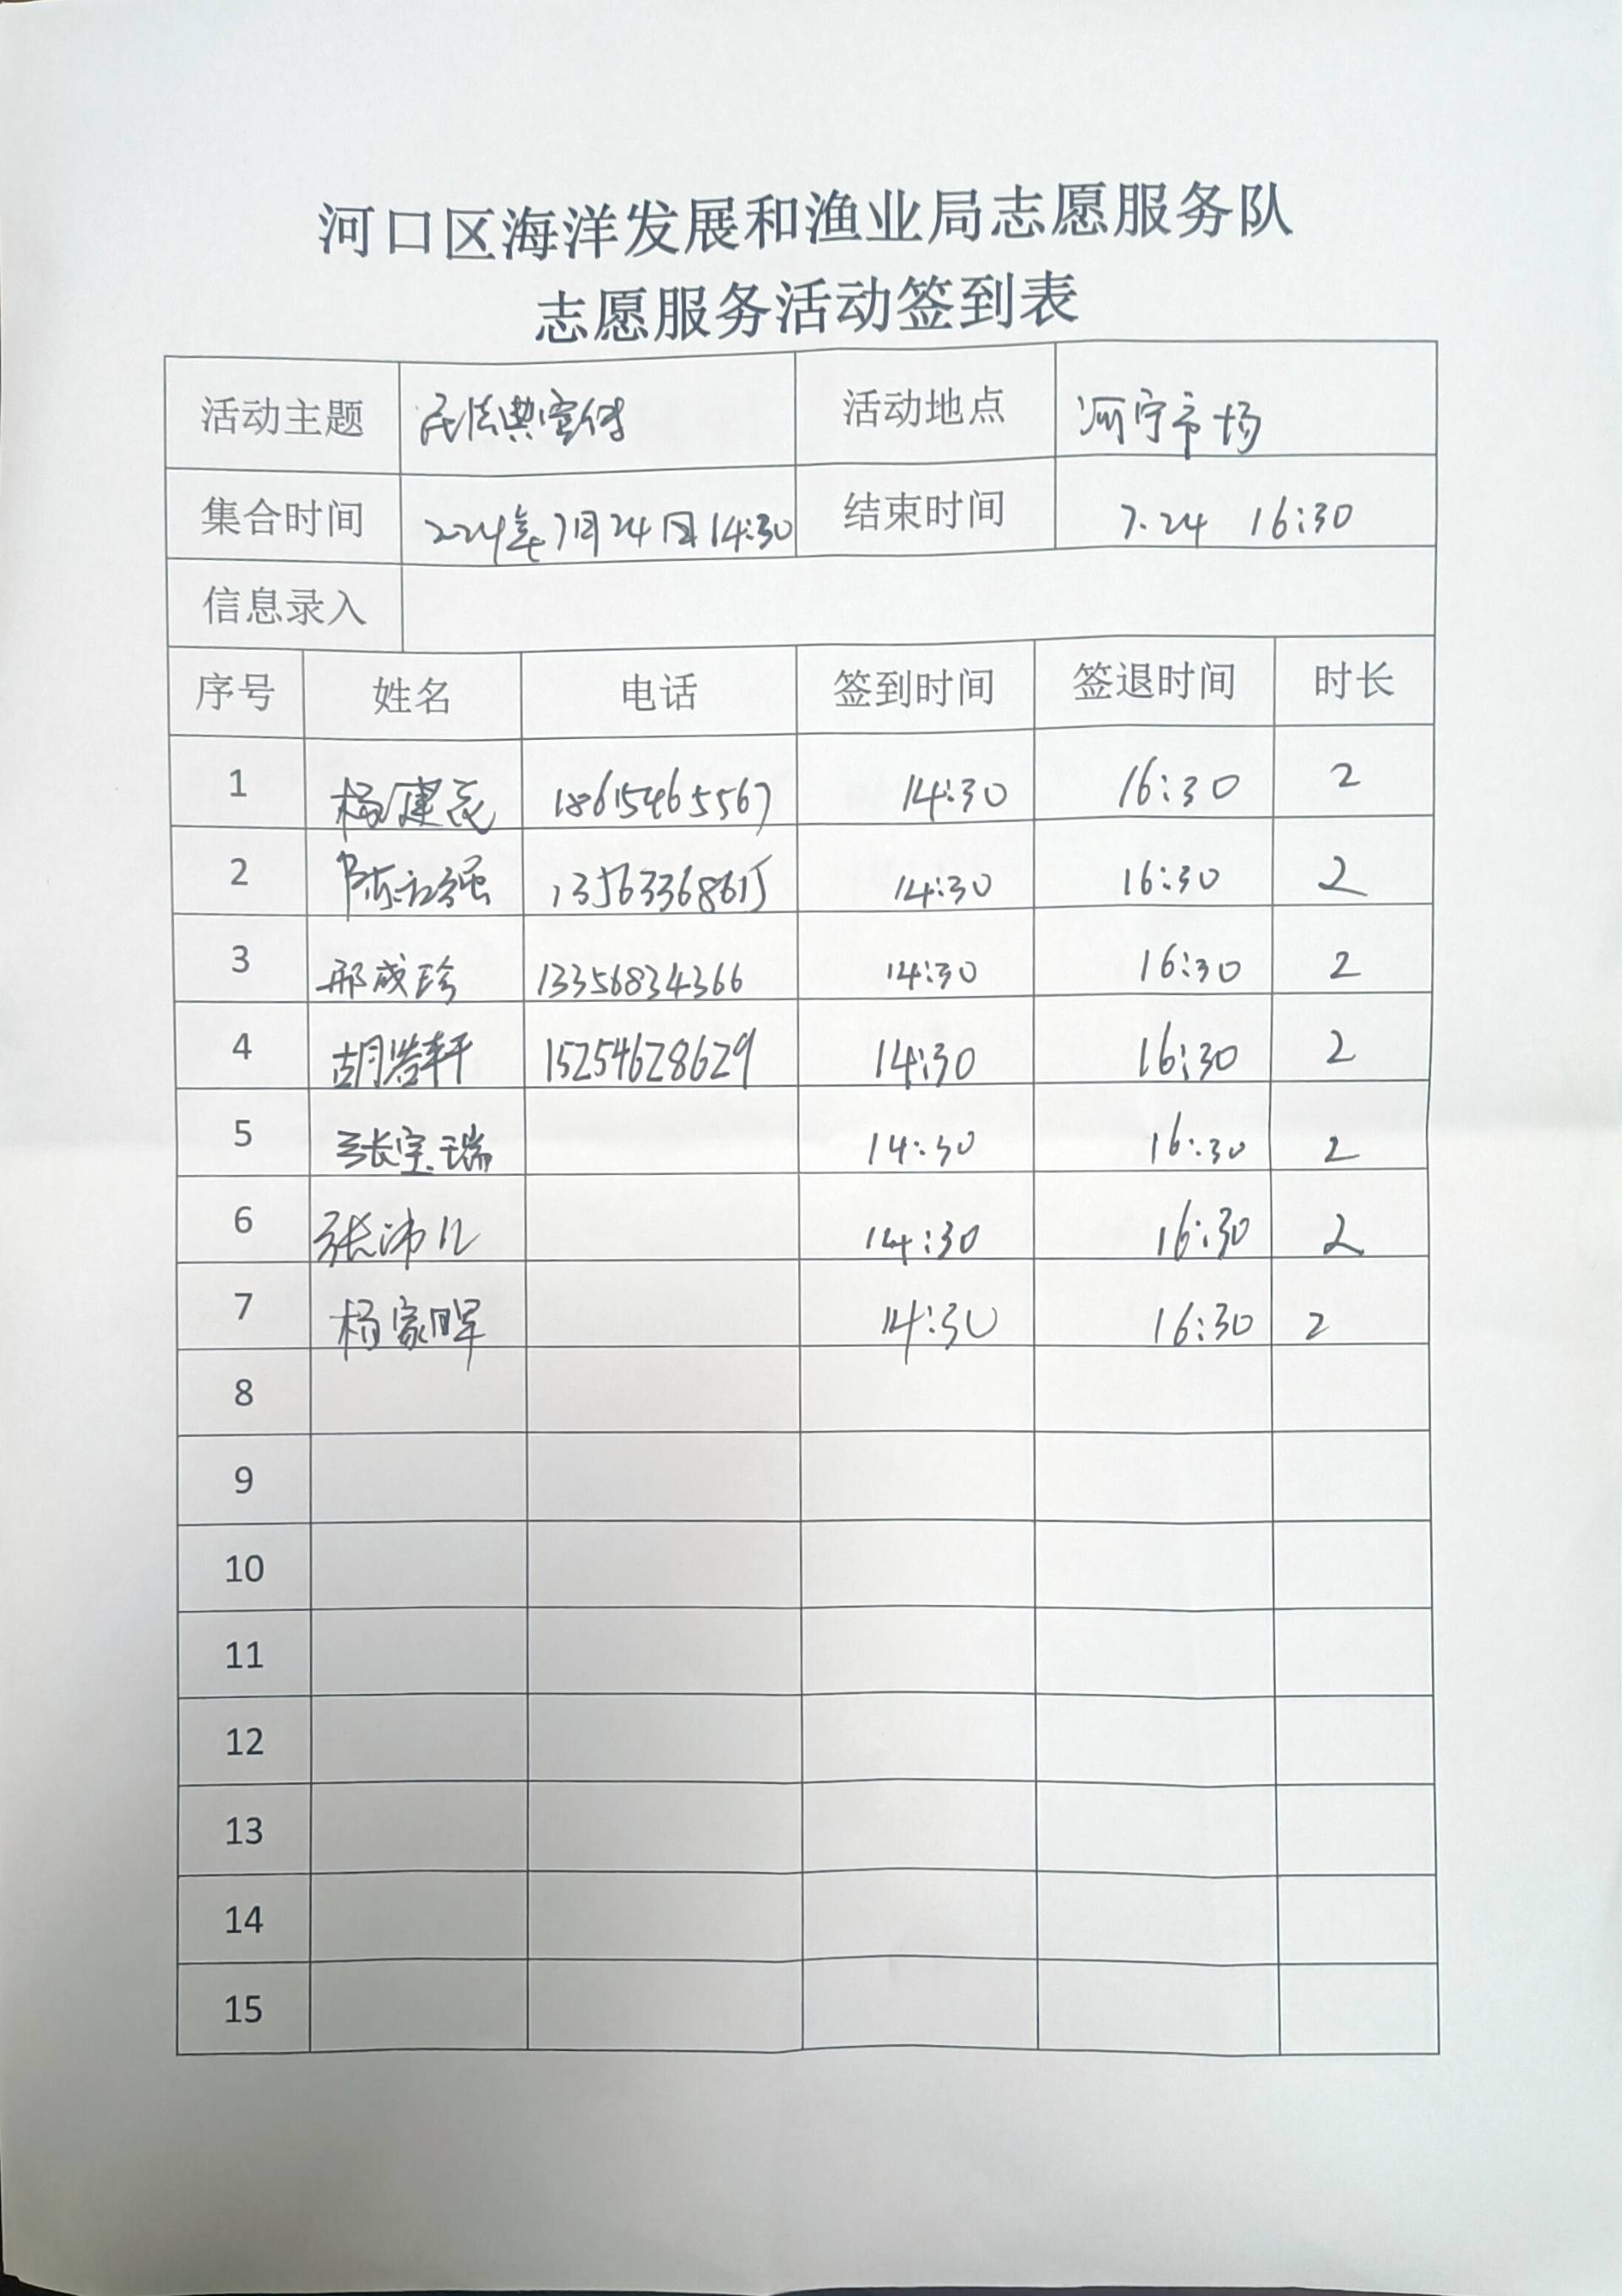 河口区海洋发展和渔业局志愿服务队
志愿服务活动签到表
活动主题 民法典宣传 活动地点 河宁市场
集合时间 2024年7月24日14:30 结束时间 7.24 16:30
信息录入
序号 姓名 电话 签到时间 签退时间 时长
1 杨建 18615465567 14:30 16:30 2
2 陈强 13563368615 14:30 16:30 2
3 邢成珍 13356834366 14:30 16:30 2
4 胡浩轩 15254628629 14:30 16:30 2
5 张宝瑞 14:30 16:30 2
6 张沛 14:30 16:30 2
7 杨家晖 14:30 16:30 2
8
9
10
11
12
13
14
15